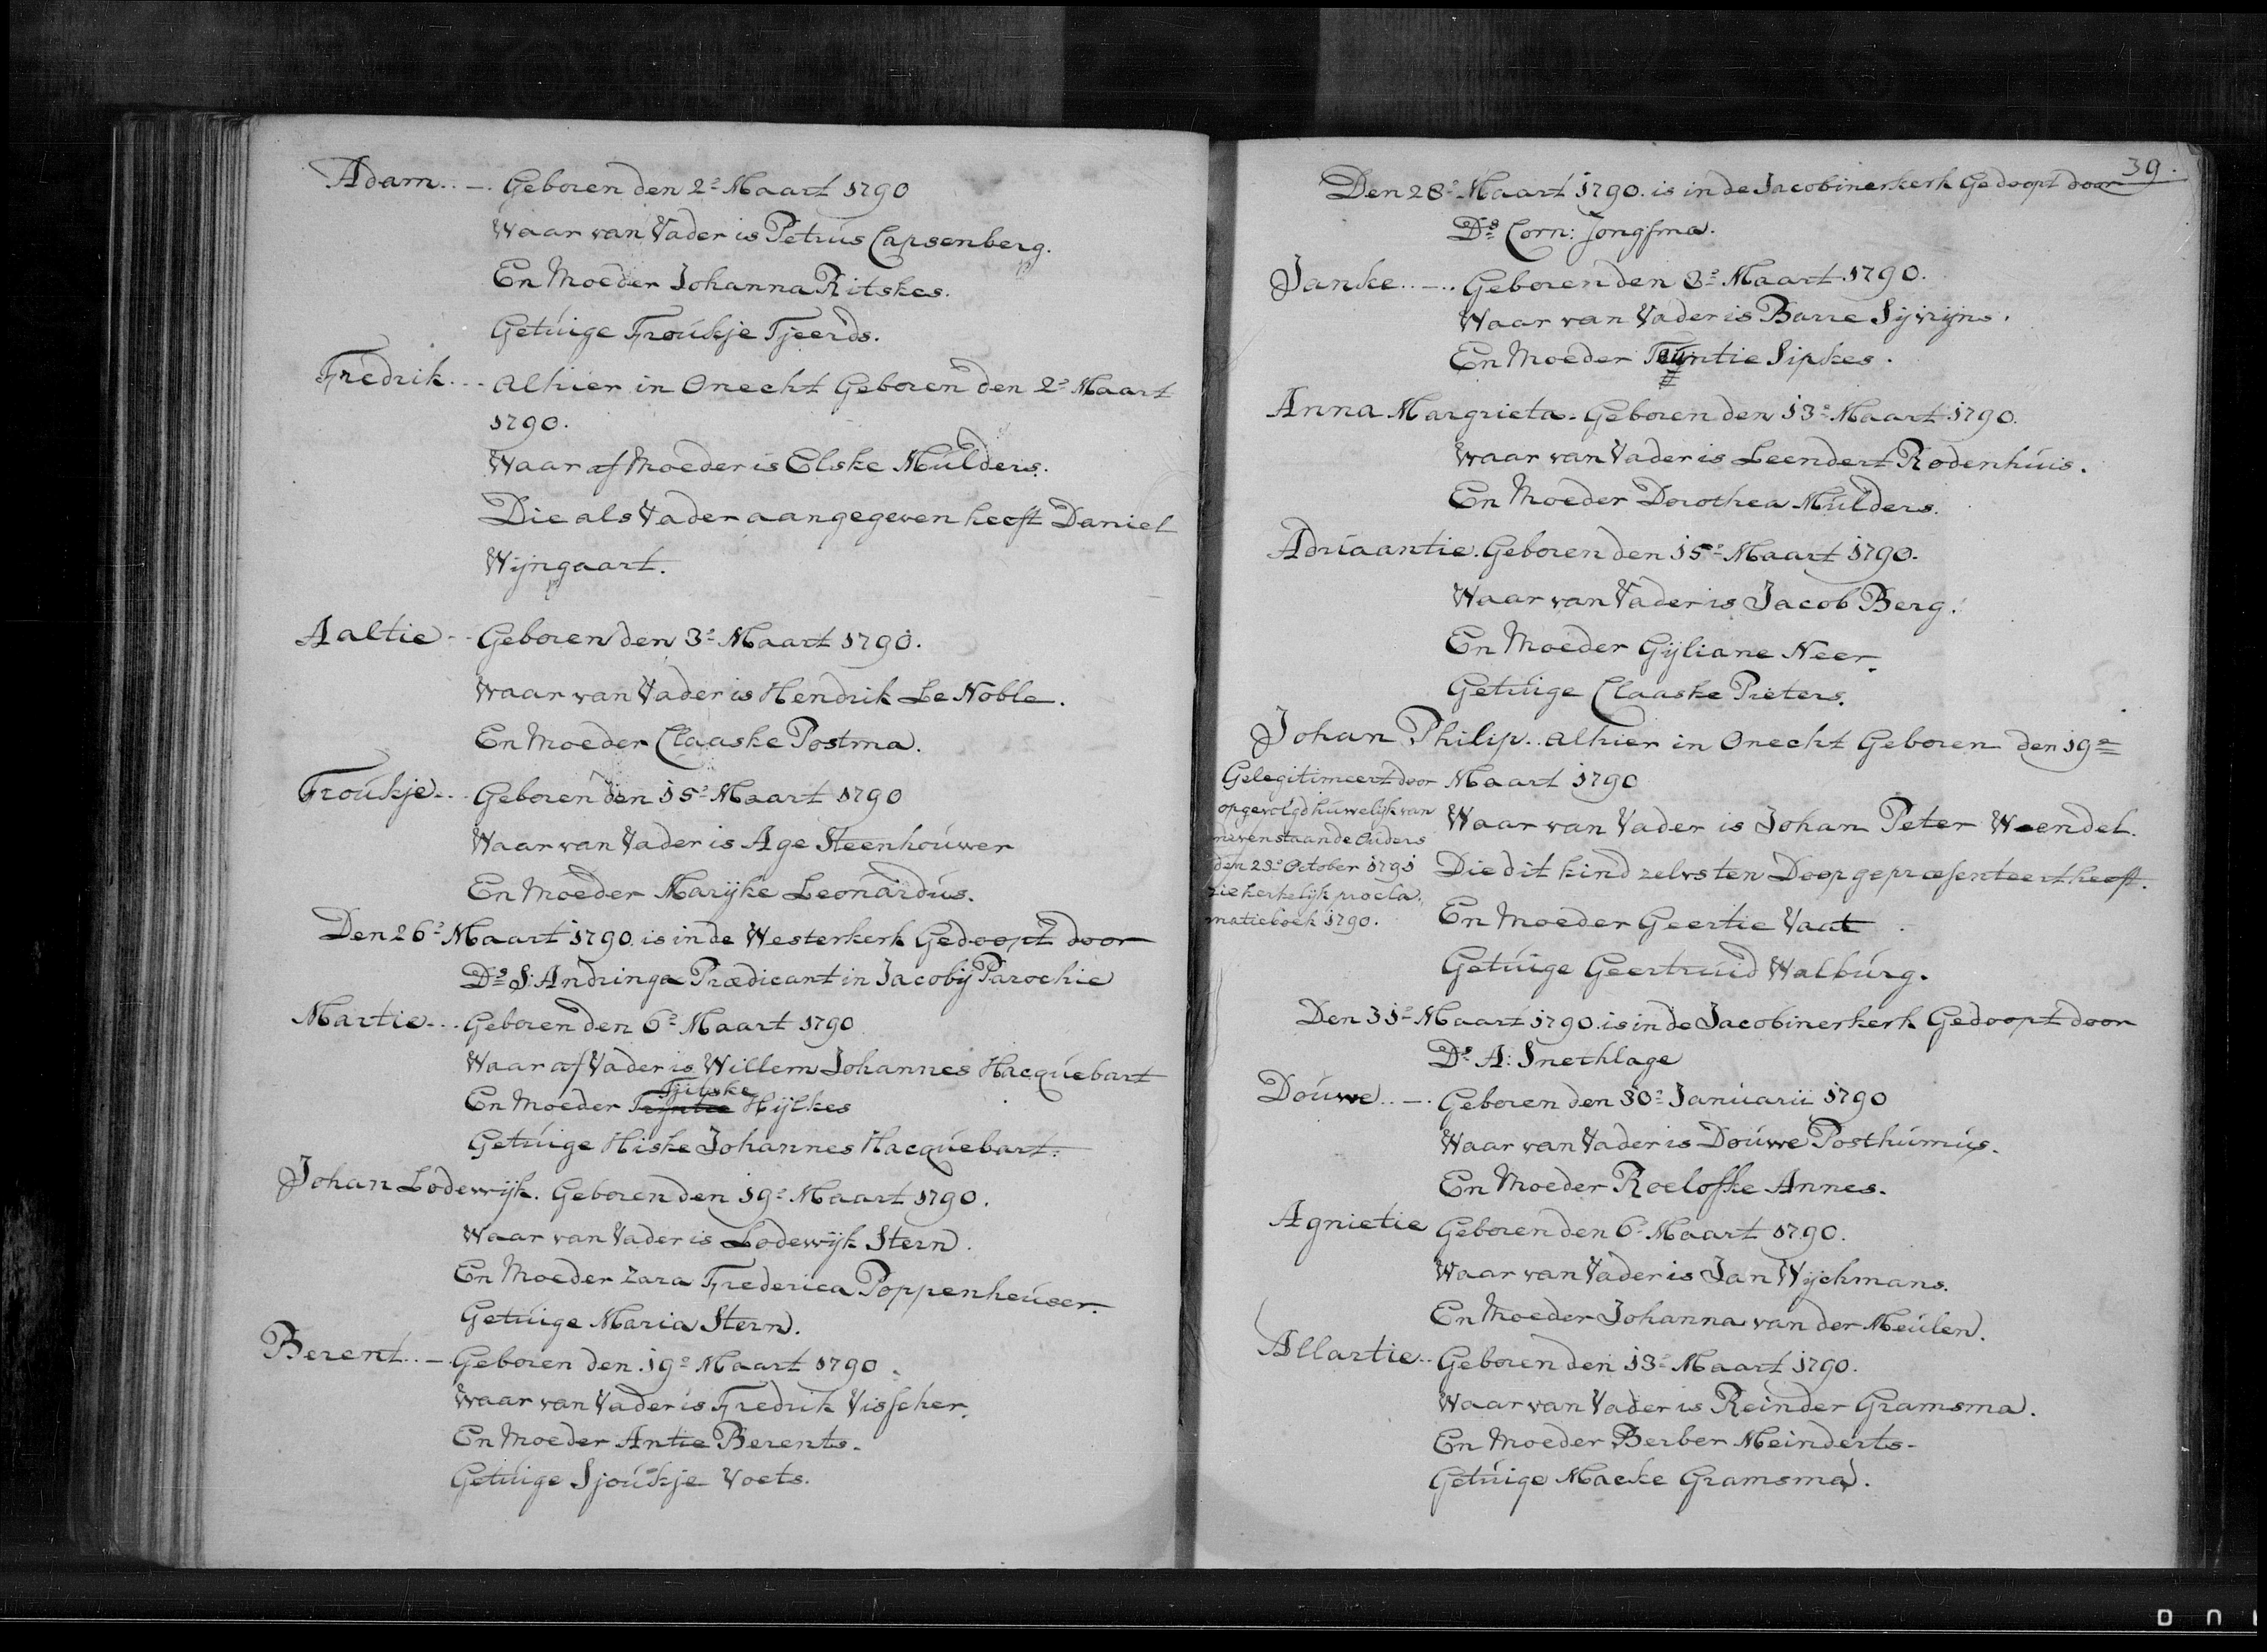 Adam..-. Geboren den 2e Maart 1790
Waar van Vader is Petrus Capsenberg.
En Moeder Johanna Ritskes.
Getuige Froukje Tjeerds.
Fredrik... Alhier in Onecht Geboren den 2e Maart
1790.
Waar af Moeder is Elske Mulders.
Die als Vader aangegeven heeft Daniel
Wijngaart.
Aaltie.. Geboren den 3e Maart 1790.
Waar van Vader is Hendrik Le Noble.
En Moeder Claaske Postma.
Froukje.. Geboren den 15e Maart 1790
Waar van Vader is Age Steenhouwer
En Moeder Marijke Leonardus.
Den 26e Maart 1790. is in de Westerkerk Gedoopt door
Ds S: Andringa Prædicant in Jacobij Parochie
Martie... Geboren den 6e Maart 1790
Waar af Vader is Willem Johannes Hacquebart
Tjitske
En Moeder Trijntie Hijlkes
Getuige Hiske Johannes Hacquebart.
Johan Lodewijk. Geboren den 19e Maart 1790.
Waar van Vader is Lodewijk Stern.
En Moeder Zara Frederica Poppenheuser.
Getuige Maria Stern.
Berent..-. Geboren den 19e Maart 1790.
Waar van Vader is Fredrik Visscher.
En Moeder Antie Berents.
Getuige Sjoukje Voets.
39.
Den 28e Maart 1790. is in de Jacobinerkerk Gedoopt door
Ds Corn: Jongsma.
Janke..-.. Geboren den 3e Maart 1790.
Waar van Vader is Barre Sijvrijns.
En Moeder Sipkes.
Anna Margrieta. Geboren den 13e Maart 1790.
Waar van Vader is Leendert Rodenhuis.
En Moeder Dorothea Mulders.
Adriaantie. Geboren den 15e Maart 1790.
Waar van Vader is Jacob Berg.
En Moeder Gijliane Neer.
Getuige Claaske Pieters.
Johan Philip.. Alhier in Onecht Geboren den 19e
Maart 1790
Gelegitimeert door
opgevolgd huwelijk van
nevenstaande Ouders
den 23e October 1791
zie kerkelijk procla,
matieboek 1790.
Waar van Vader is Johan Peter Wendel.
Die dit kind zelvs ten Doop gepræsenteert heeft.
En Moeder Geertie Vaat
Getuige Geertruid Walburg.
Den 31e Maart 1790. is in de Jacobinerkerk Gedoopt door
Ds A: Snethlage
Douwe..-. Geboren den 30e Januarii 1790
Waar van Vader is Douwe Posthumus.
En Moeder Roelofke Annes.
Agnietie Geboren den 6e Maart 1790.
Waar van Vader is Jan Wijchmans.
En Moeder Johanna van der Meulen.
Allartie.. Geboren den 13e Maart 1790.
Waar van Vader is Reinder Gramsma.
En Moeder Berber Meinderts.
Getuige Maeke Gramsma.